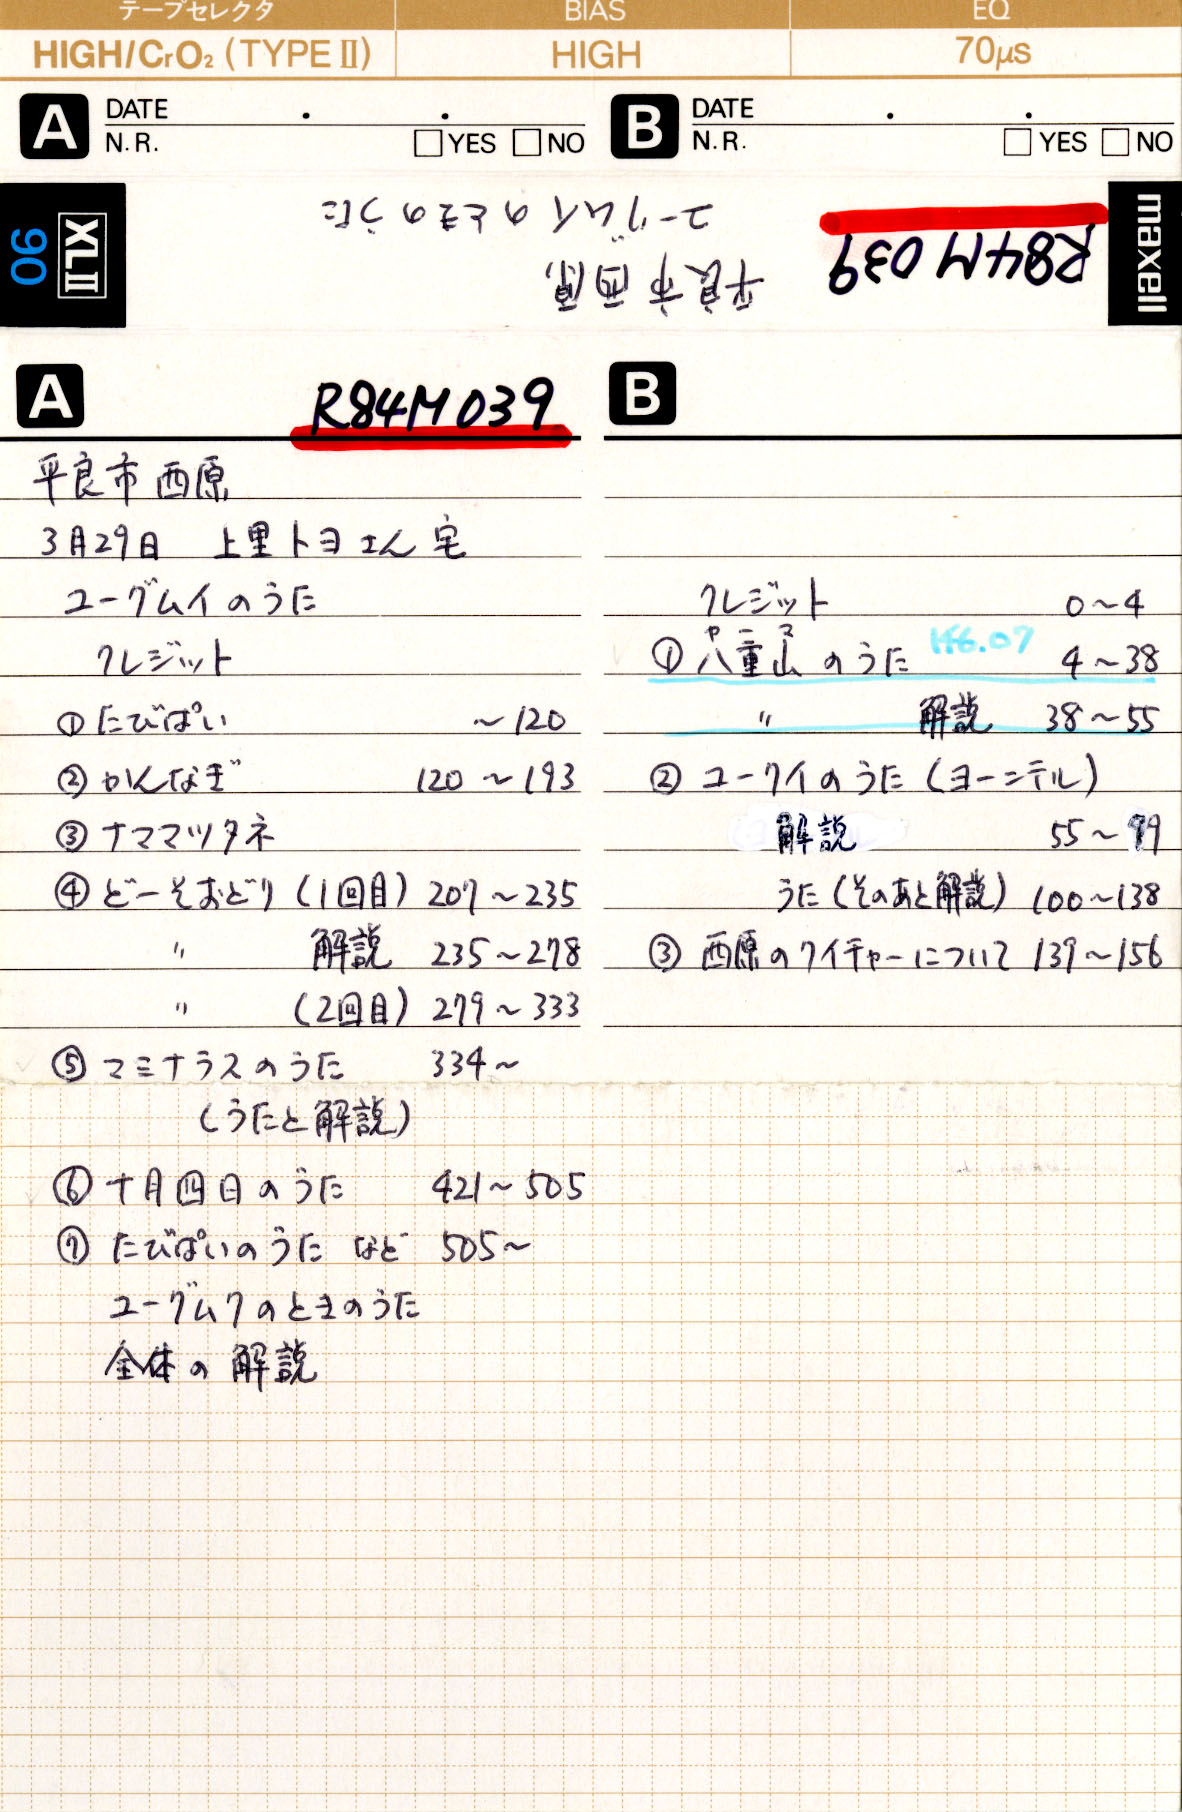 テープセレクタ BIAS EQ
HIGH/CrO₂ (TYPE II) HIGH 70μs
A DATE . . B DATE . .
N.R. YES NO N.R. YES NO
XLII 90
R84M039
平良市西原
ユーグムイのときのうた
maxell
A R84M039
平良市西原
3月29日 上里トヨさん宅
ユーグムイのうた
クレジット
①たびぱい ～120
②かんなぎ 120～193
③ナママツタネ
④どーそおどり(1回目) 207～235
〃 解説 235～278
〃 (2回目) 279～333
⑤マミナラスのうた 334～
(うたと解説)
⑥十月四日のうた 421～505
⑦たびぱいのうた など 505～
ユーグムクのときのうた
全体の解説
B
クレジット 0～4
ヤーマ
①八重山のうた 146.07 4～38
〃 解説 38～55
②ユークイのうた(ヨーンテル)
解説 55～99
うた(そのあと解説) 100～138
③西原のクイチャーについて 139～156